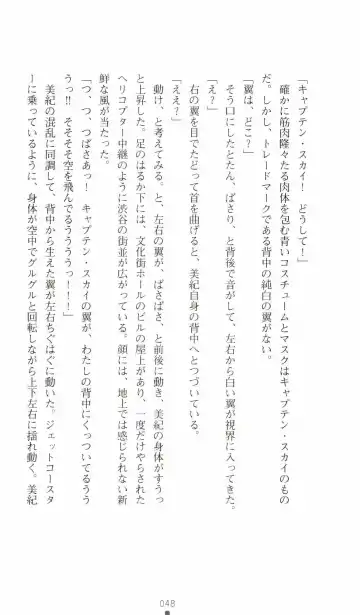 「キャプテン・スカイ！　どうして！」
　確かに筋肉隆々たる肉体を包む青いコスチュームとマスクはキャプテン・スカイのもの
だ。しかし、トレードマークである背中の純白の翼がない。
「翼は、どこ？」
　そう口にしたとたん、ばさり、と背後で音がして、左右から白い翼が視界に入ってきた。
「え？」
　右の翼を目でたどって首を曲げると、美紀自身の背中へとつづいている。
「ええ？」
　動け、と考えてみる。と、左右の翼が、ばさばさ、と前後に動き、美紀の身体がすうっ
と上昇した。足のはるか下には、文化街ホールのビルの屋上があり、一度だけやらされた
ヘリコプター中継のように渋谷の街並が広がっている。顔には、地上では感じられない新
鮮な風が当たった。
「つ、つ、つばさあっ！　キャプテン・スカイの翼が、わたしの背中にくっついてるうう
うっ!!　そそそそ空を飛んでるうううう！！！」
　美紀の混乱に同調して、背中から生えた翼が左右ちぐはぐに動いた。ジェットコースタ
ーに乗っているように、身体が空中でグルグルと回転しながら上下左右に揺れ動く。美紀
048